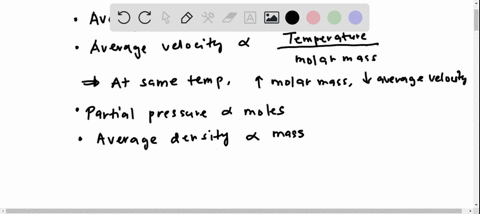 • Av
• Average velocity α Temperature / molar mass
⇒ At same temp, ↑ molar mass, ↓ average velocity
• Partial pressure α moles
• Average density α mass